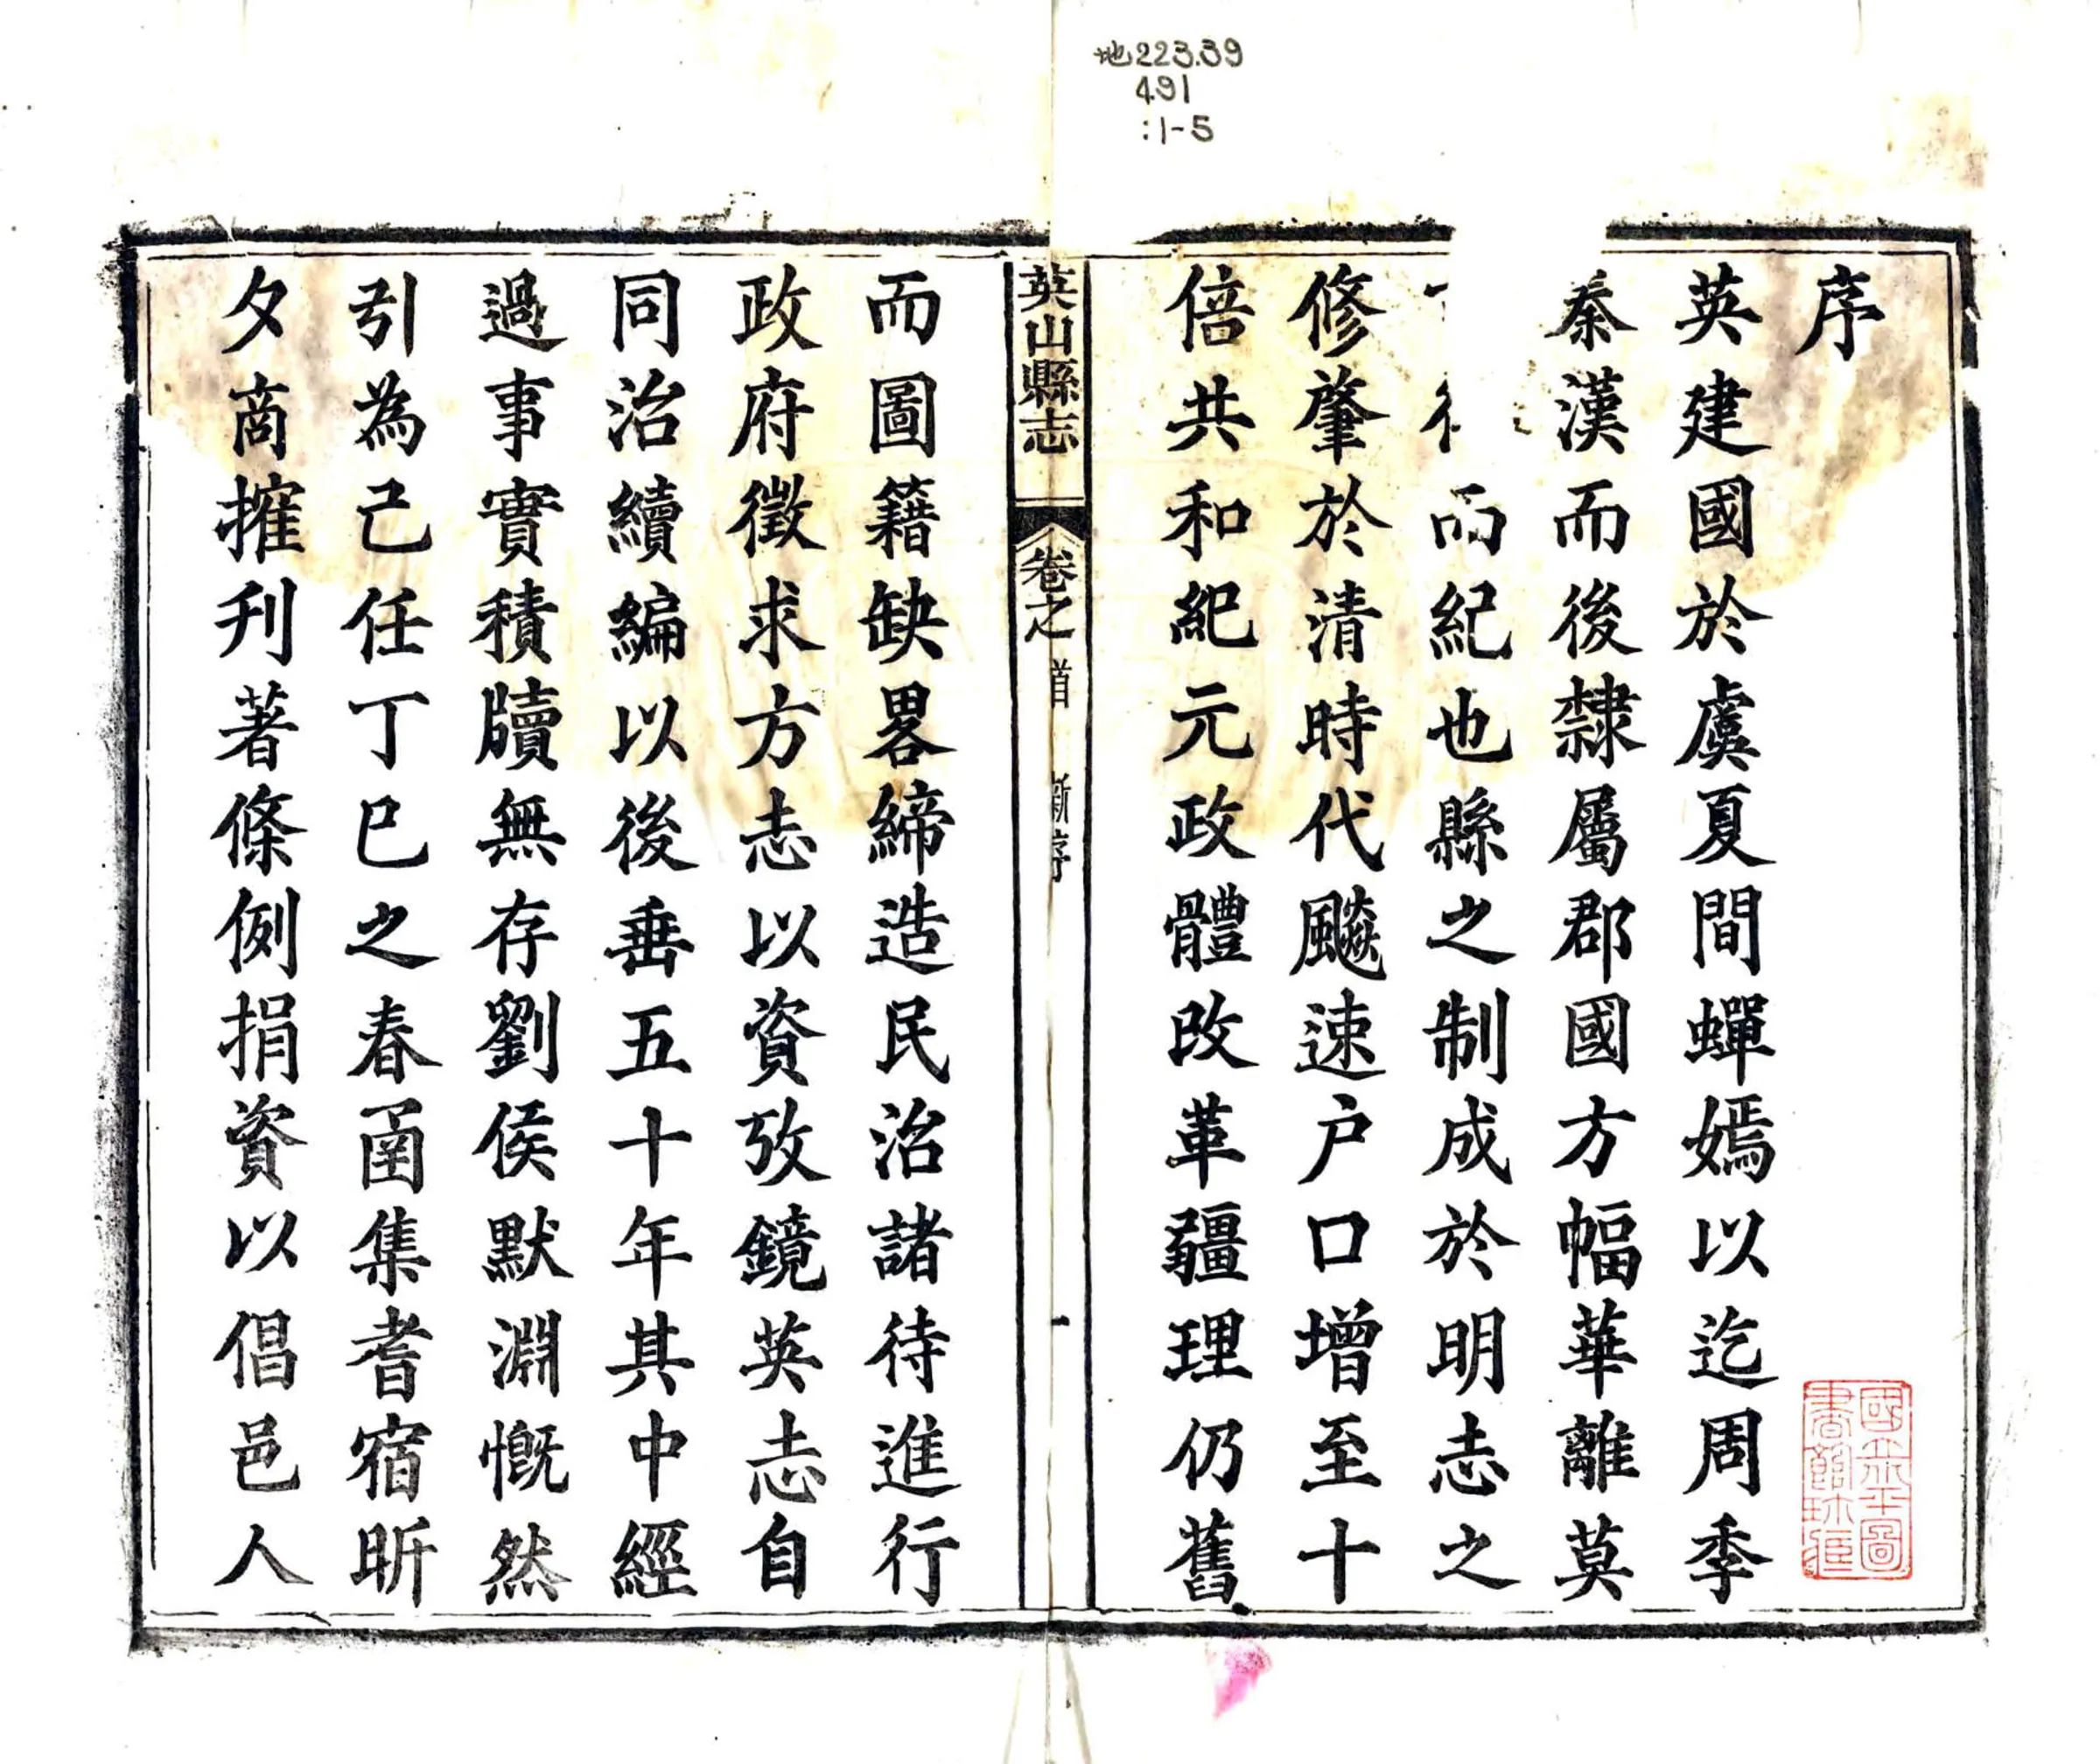 地223.39
491
:1-5
序
英建國於虞夏間蟬嫣以迄周季
秦漢而後隸屬郡國方幅華離莫
而紀也縣之制成於明志之
修肇於清時代飈速户口增至十
倍共和紀元政體改革疆理仍舊
英山縣志 卷之首 新序 一
而圖籍缺畧締造民治諸待進行
政府徵求方志以資攷鏡英志自
同治續編以後垂五十年其中經
過事實積牘無存劉侯默淵慨然
引為己任丁巳之春函集耆宿昕
夕商搉刋著條例捐資以倡邑人
國立北平圖
書館珍藏